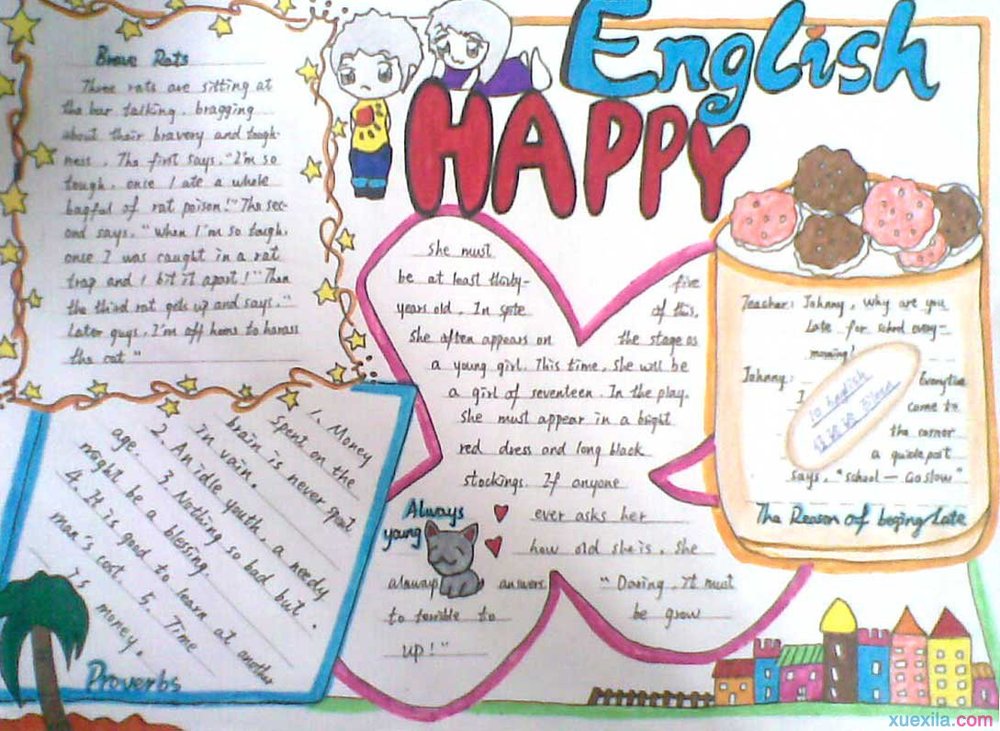 English
HAPPY
Brave Rats
Three rats are sitting at
the bar talking, bragging
about their bravery and tough-
ness. The first says, "I'm so
tough, once I ate a whole
bagful of rat poison!" The sec-
ond says, "When I'm so tough,
once I was caught in a rat
trap and I bit it apart!" Then
the third rat gets up and says, "
Later guys, I'm off home to harass
the cat"
1. Money
spent on the
brain is never spent
in vain.
2. An idle youth, a needy
age. 3. Nothing so bad but
might be a blessing.
4. It is good to learn at another
man's cost. 5. Time
is money.
Proverbs
she must
be at least thirty-five
years old. In spite of this,
she often appears on the stage as
a young girl. This time, she will be
a girl of seventeen. In the play,
she must appear in a bright
red dress and long black
stockings. If anyone
Always
young
ever asks her
how old she is, she
always answers "Daring, it must
to terrible to be grow
up!"
Teacher: Johnny, why are you
late for school every-
morning!
Johnny: Everytime
I come to
the corner
a guidepost
says, "School — Go slow"
The Reason of beging Late
xuexila.com